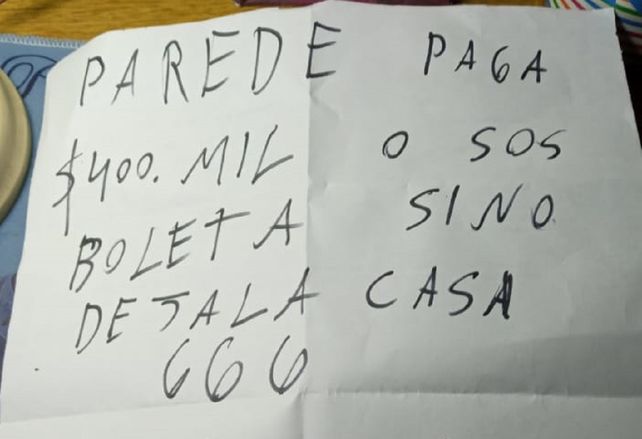 PAREDE PAGA
$400. MIL O SOS
BOLETA SINO
DEJALA CASA
666